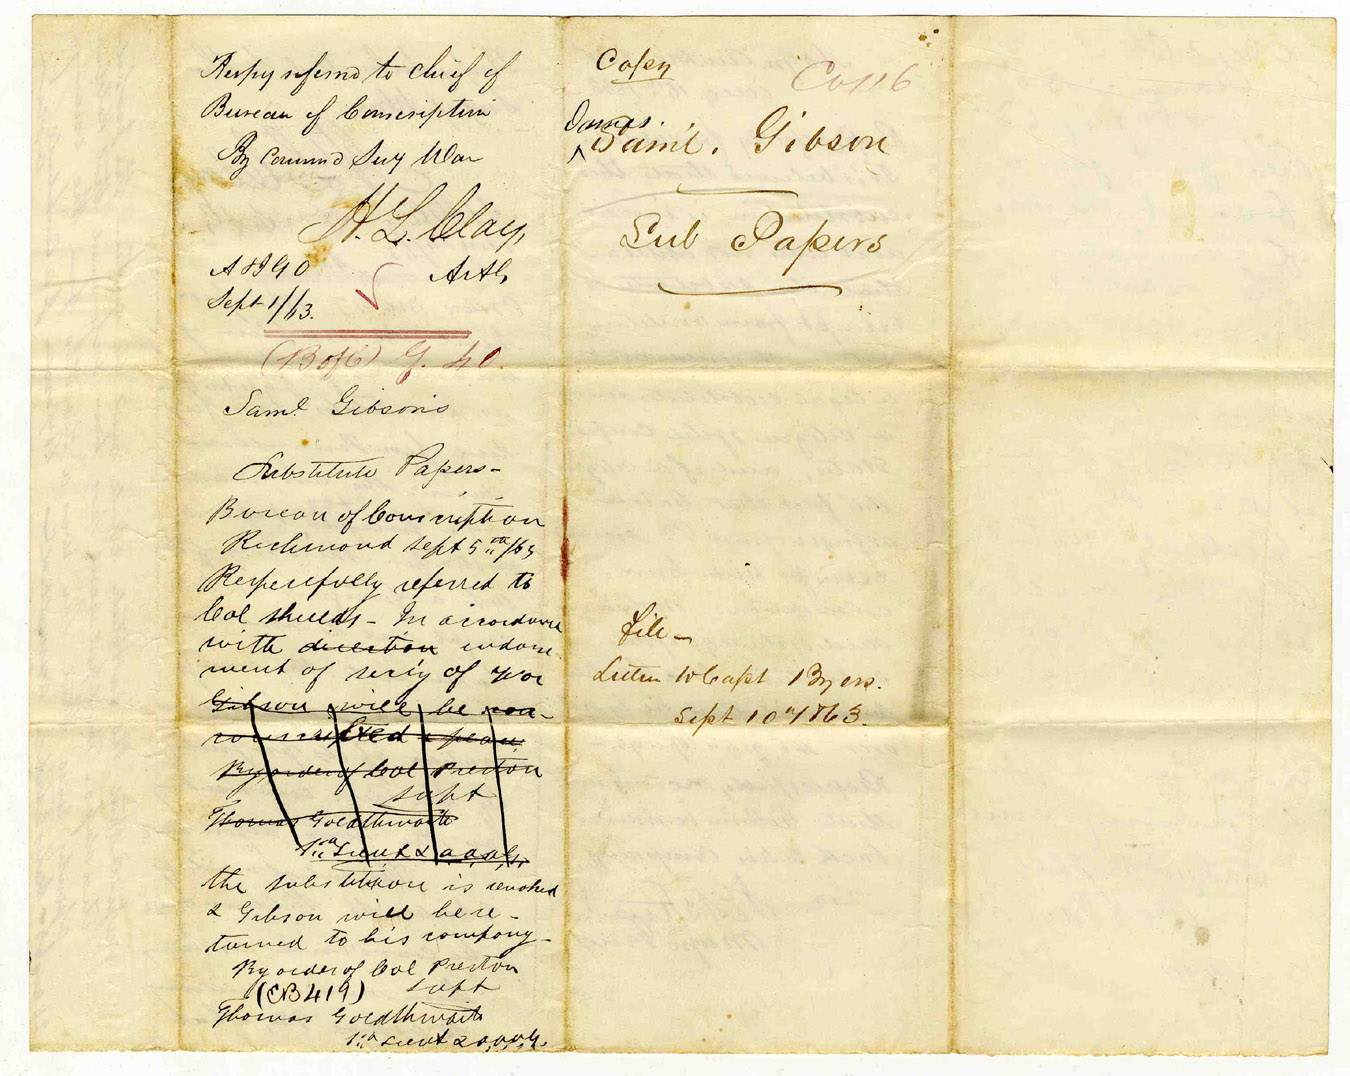 Respy referred to chief of
Bureau of Conscription
By Comm'd Secy War
H. L. Clay,
A & I G O
AAG,
Sept 1/63.
(B of C) G. 40.
Saml Gibson's
Substitute Papers-
Bureau of Conscription
Richmond Sept 5th/63
Respectfully referred to
Col Shields - In accordance
with direction endorse-
ment of Secy of War
Gibson will be con-
conscripted
By order of Col Preston
Supt
Thomas Goldthwaite
1st Lieut & a.a.a.g.
the substitution is revoked
& Gibson will be re-
turned to his company-
By order of Col Preston
(CB419) Supt
Thomas Goldthwaite
1st Lieut & a.a.a.g.
Copy
Co 116
James.
Saml. Gibson
Sub Papers
File-
Letter to Capt Byers.
Sept 10th 1863.